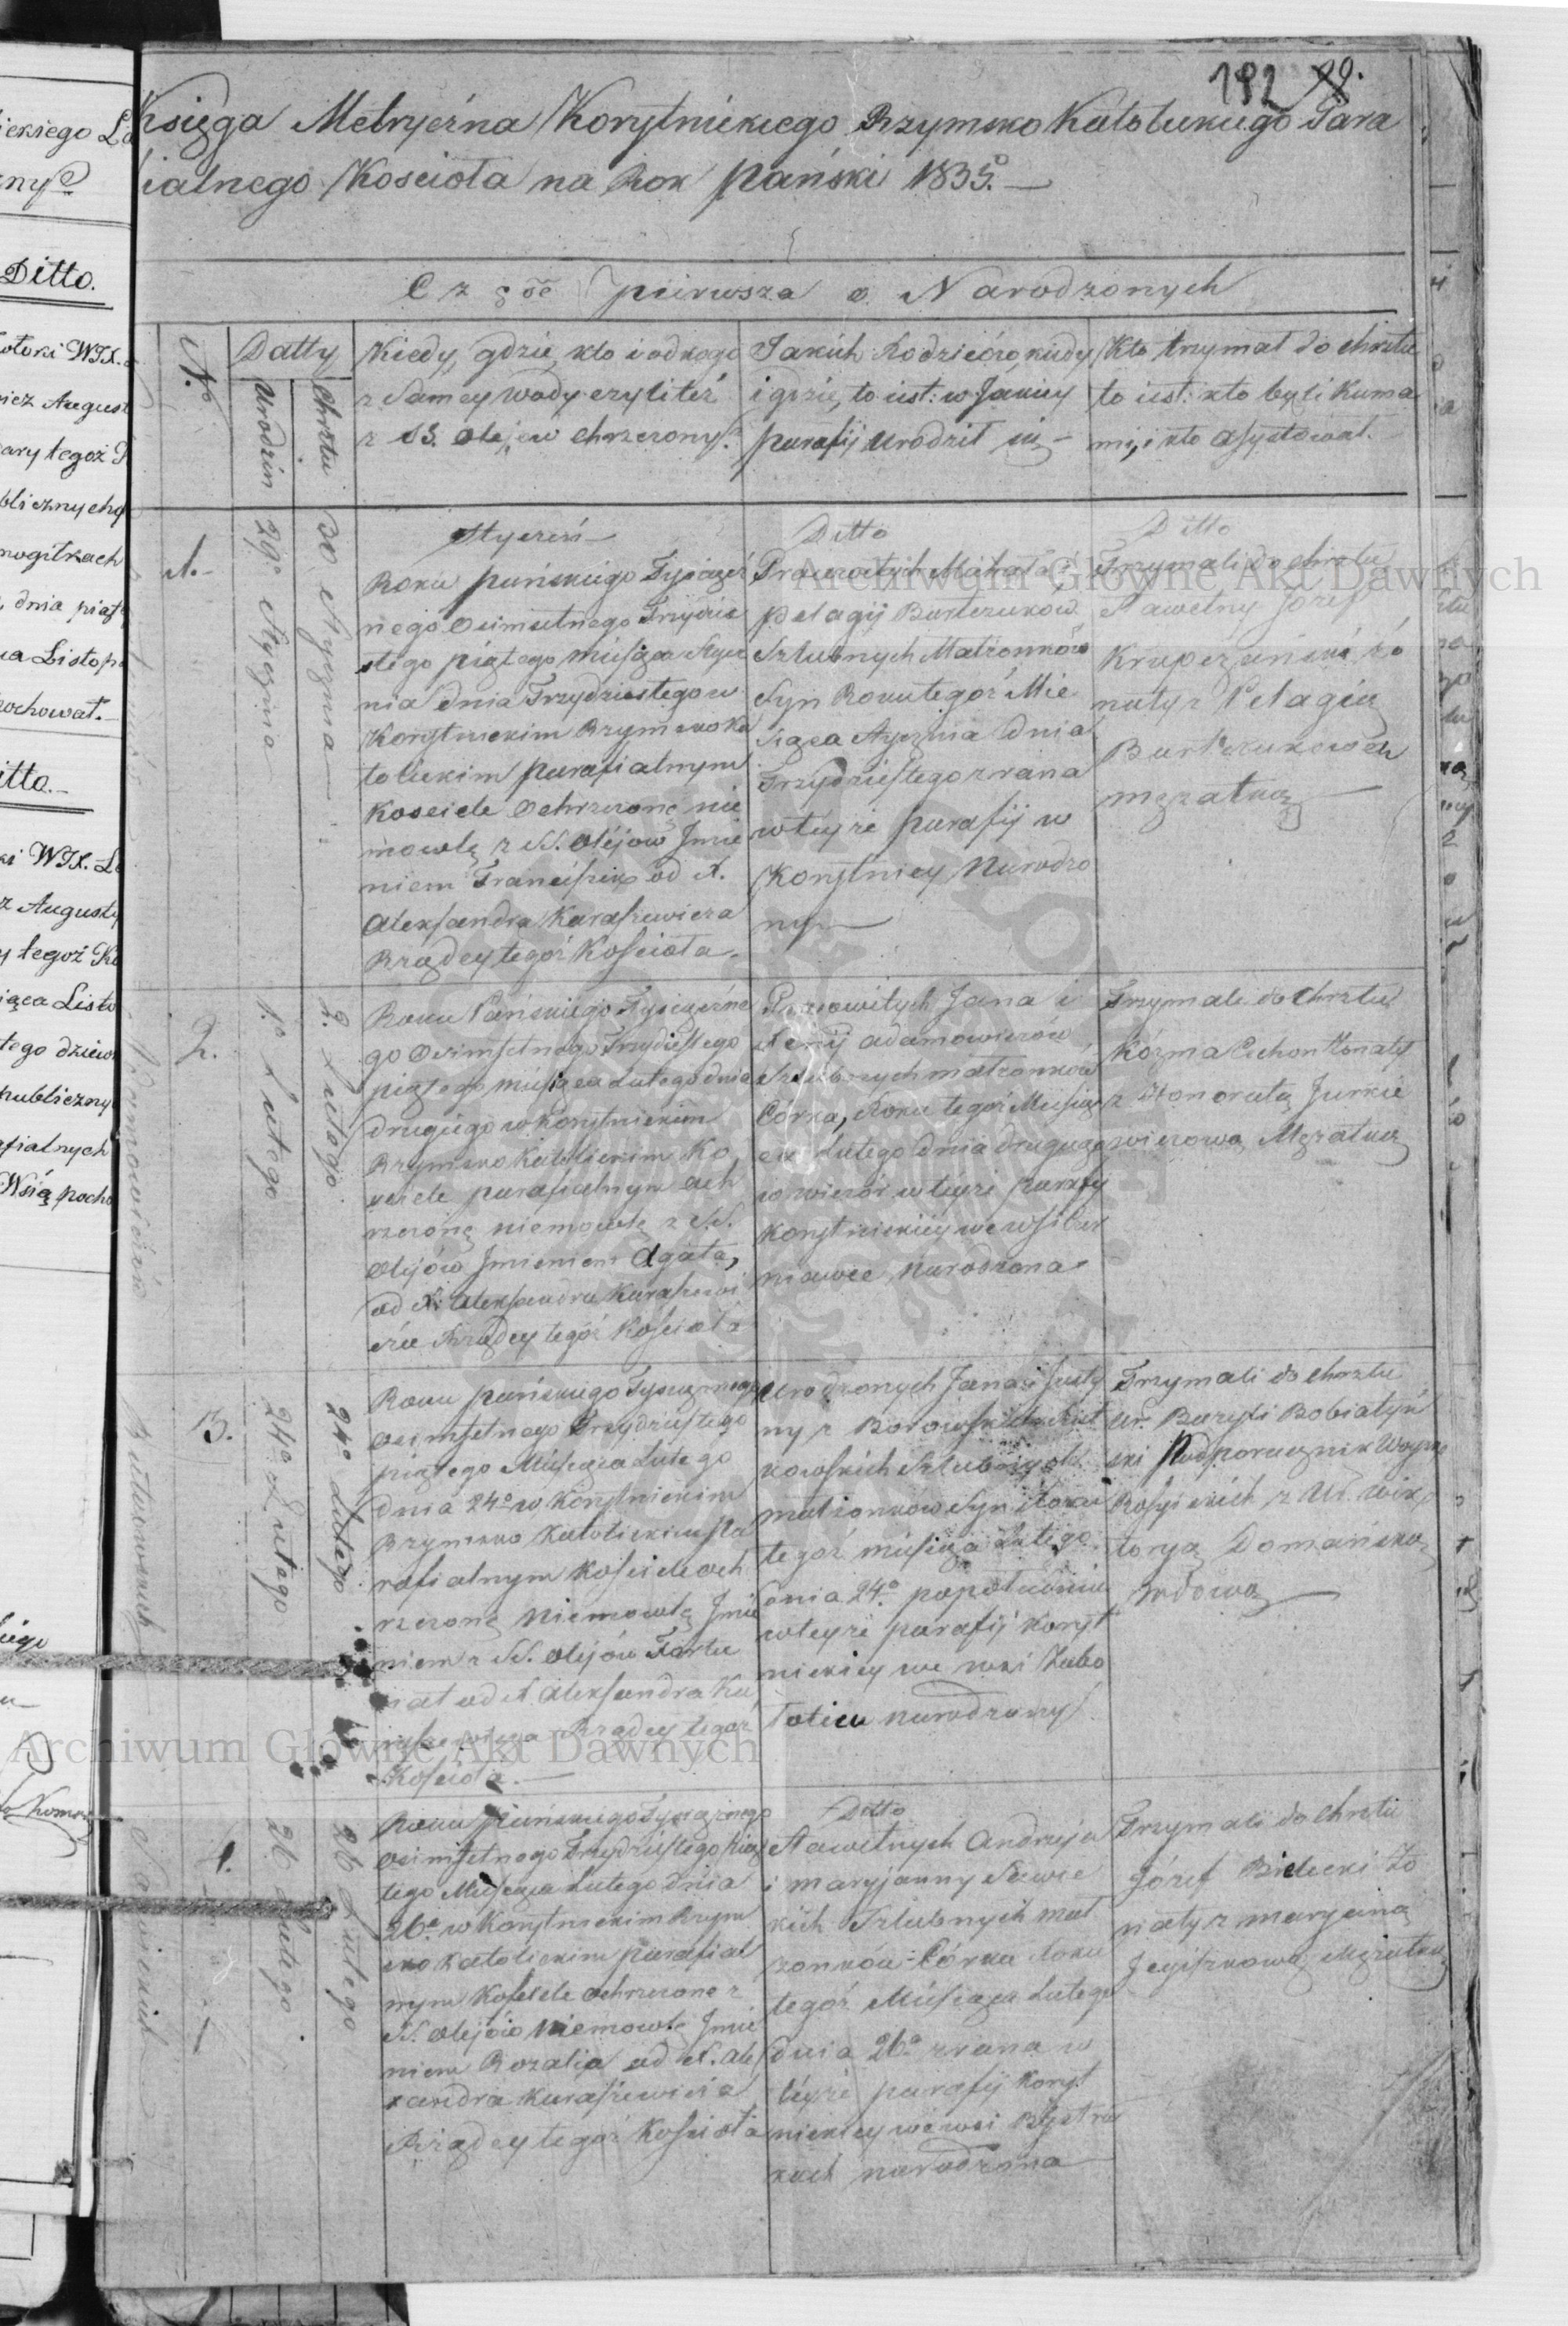 192 29.
Księga Metryczna Korytnickiego Rzymsko Katolickiego Para
ialnego Koscioła na Rok Pański 1835.
Część pierwsza o Narodzonych
N.ro
Datty
Urodzin
Chrztu
Kiedy, gdzie, kto i od kogo
z Samey wody czyli też
z SS. Olejow Chrzczony.
Jakich Rodziców, kiedy
i gdzie, to iest: w Jakiey
parafij urodził się
Kto trzymał do chrztu
to iest: kto byli Kuma
mi, i kto asystował.
1.
29o Stycznia
30 Stycznia
Styczeń
Roku Pańskiego Tysiącz
nego Osimsetnego Trzydzie
stego piątego miesiąca Stycz
nia dnia Trzydziestego w
Korytnickim Rzymsko Ka
tolickim parafialnym
Kosciele Ochrzczone nie
mowlę z SS. Olejow Jmie
niem Franciszek od X.
Alexandra Karaszewicza
Rządcy tegoż Kościoła.
Ditto
Pracowitych Michała i
Pelagij Bartczuków
Szlubnych Małżonków
Syn Roku tegoż Mie
siąca Stycznia dnia
Trzydziestego z rana
w teyże parafij w
Korytnicy Narodzo
ny
Ditto
Trzymali do chrztu
Sławetny Jozef
żo
naty z Pelagią
Bartczukową
mężatką
2.
1o Lutego
2. Lutego
Adamowiczow
Roku Pańskiego Tysiączne
go Osimsetnego Trzydziestego
piątego miesiąca Lutego dnia
drugiego w Korytnickim
Rzymsko Katolickim Ko
sciele parafialnym Och
rzczone niemowlę z SS.
Olejów Jmieniem Agata,
od X. Alexandra Karaszewi
cza Rządcy tegoż Kościoła
Pracowitych Jana i
Xenij Adamowiczów
Szlubnych małżonków
Córka, Roku tegoż Miesią
ca Lutego dnia drugiego
w wieczór w teyże parafij
Korytnickiey we wsi
narodzona
Trzymali do Chrztu
Kozma Żonaty
z Honoratą Jurkie
wiczową Mężatką
3.
24o Lutego
24o Lutego
Roku Pańskiego Tysiącznego
Osimsetnego Trzydziestego
piątego Miesiąca Lutego
dnia 24o w Korytnickim
Rzymsko Katolickim Pa
rafialnym Kościele Och
rzczone Niemowlę Jmie
niem z SS. Olejów Fortu
nat od X. Alexandra Ka
raszewicza Rządcy tegoż
Kościoła.
Urodzonych Jana i Justy
ny z Borowskich
kowskich Szlubnych
małżonkow Syn Roku
tegoż miesiąca Lutego
dnia 24o po południu
w teyże parafij Koryt
nickiey we wsi
narodzony
Trzymali do Chrztu
Ur. Bazyli Bobiatyń
ski Podporucznik Woysk
Rosyiskich z Ur. Wik
toryą Domańską
wdową
4.
26 Lutego
26 Lutego
Roku Pańskiego Tysiącznego
Osimsetnego Trzydziestego Pią
tego Miesiąca Lutego dnia
26o w Korytnickim Rzym
sko Katolickim parafial
nym Kosciele Ochrzczone z
SS. Olejów Niemowlę Jmie
niem Rozalia od X. Ale
xandra Karaszewicza
Rządcy tegoż Kościoła
Ditto
Sławetnych Andrzeja
i Maryjanny Sawic
kich Szlubnych mał
żonków Córka Roku
tegoż Miesiąca Lutego
dnia 26o z rana w
teyże parafij Koryt
nickiey we wsi Bystra
kach narodzona
Trzymali do Chrztu
Józef Bielecki Żo
naty z Maryanną
Mężatką
ickiego
Ditto.
otocki WJX.
icz August
ary tegoż
blicznych
mogiłkach
dnia piąt
ca Listop
ochował.
itto.
ki WJX.
z Augusty
y tegoż
iąca Listo
tego
publiczny
afialnych
Wsią pocho
Archiwum Główne Akt Dawnych
Archiwum Główne Akt Dawnych